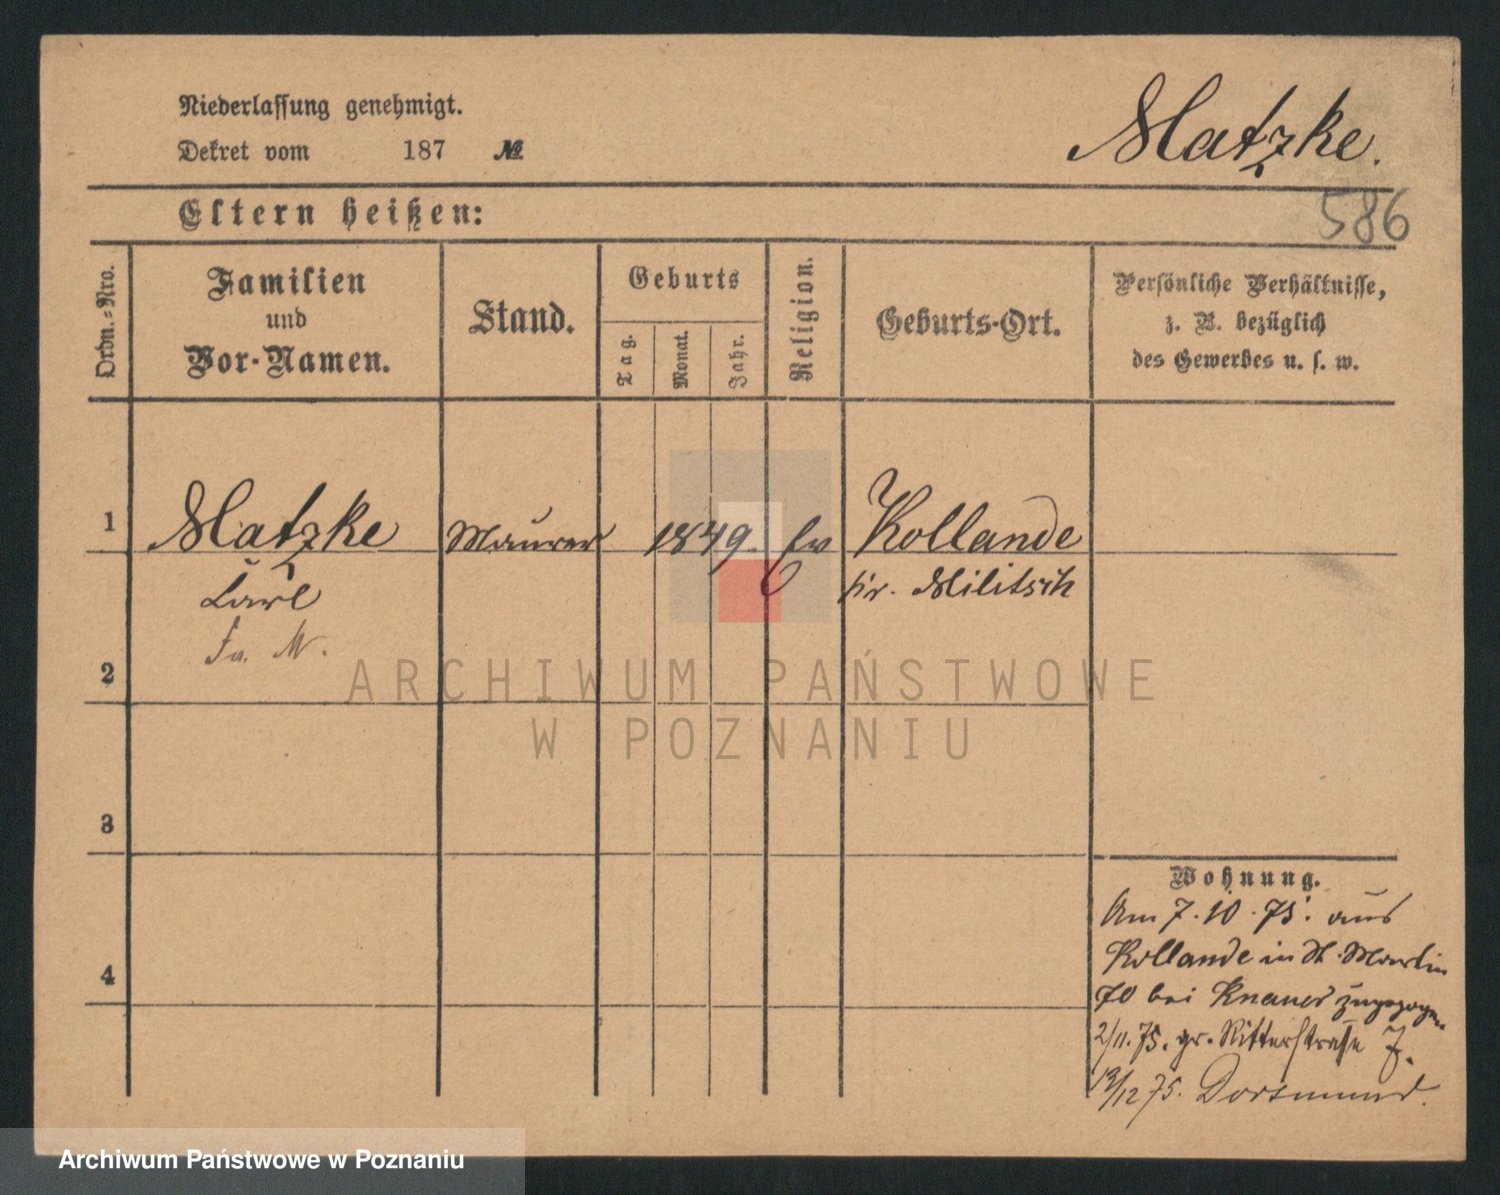 Niederlassung genehmigt.
Dekret vom 187 №
Matzke.
586
Eltern heißen:
Ordn.-Nro.
Familien
und
Vor-Namen.
Stand.
Geburts
Tag.
Monat.
Jahr.
Religion.
Geburts-Ort.
Persönliche Verhältnisse,
z. B. bezüglich
des Gewerbes u. s. w.
1 Matzke Maurer 1849. ev Kollande
Carl kr. Militsch
2
3
4
Wohnung.
Am 7.10.75. aus
Kollande in St. Martin
70 bei Knauer zugezogen
2/11.75. gr. Ritterstraße 7.
/12 75. Dortmund.
ARCHIWUM PAŃSTWOWE
W POZNANIU
Archiwum Państwowe w Poznaniu